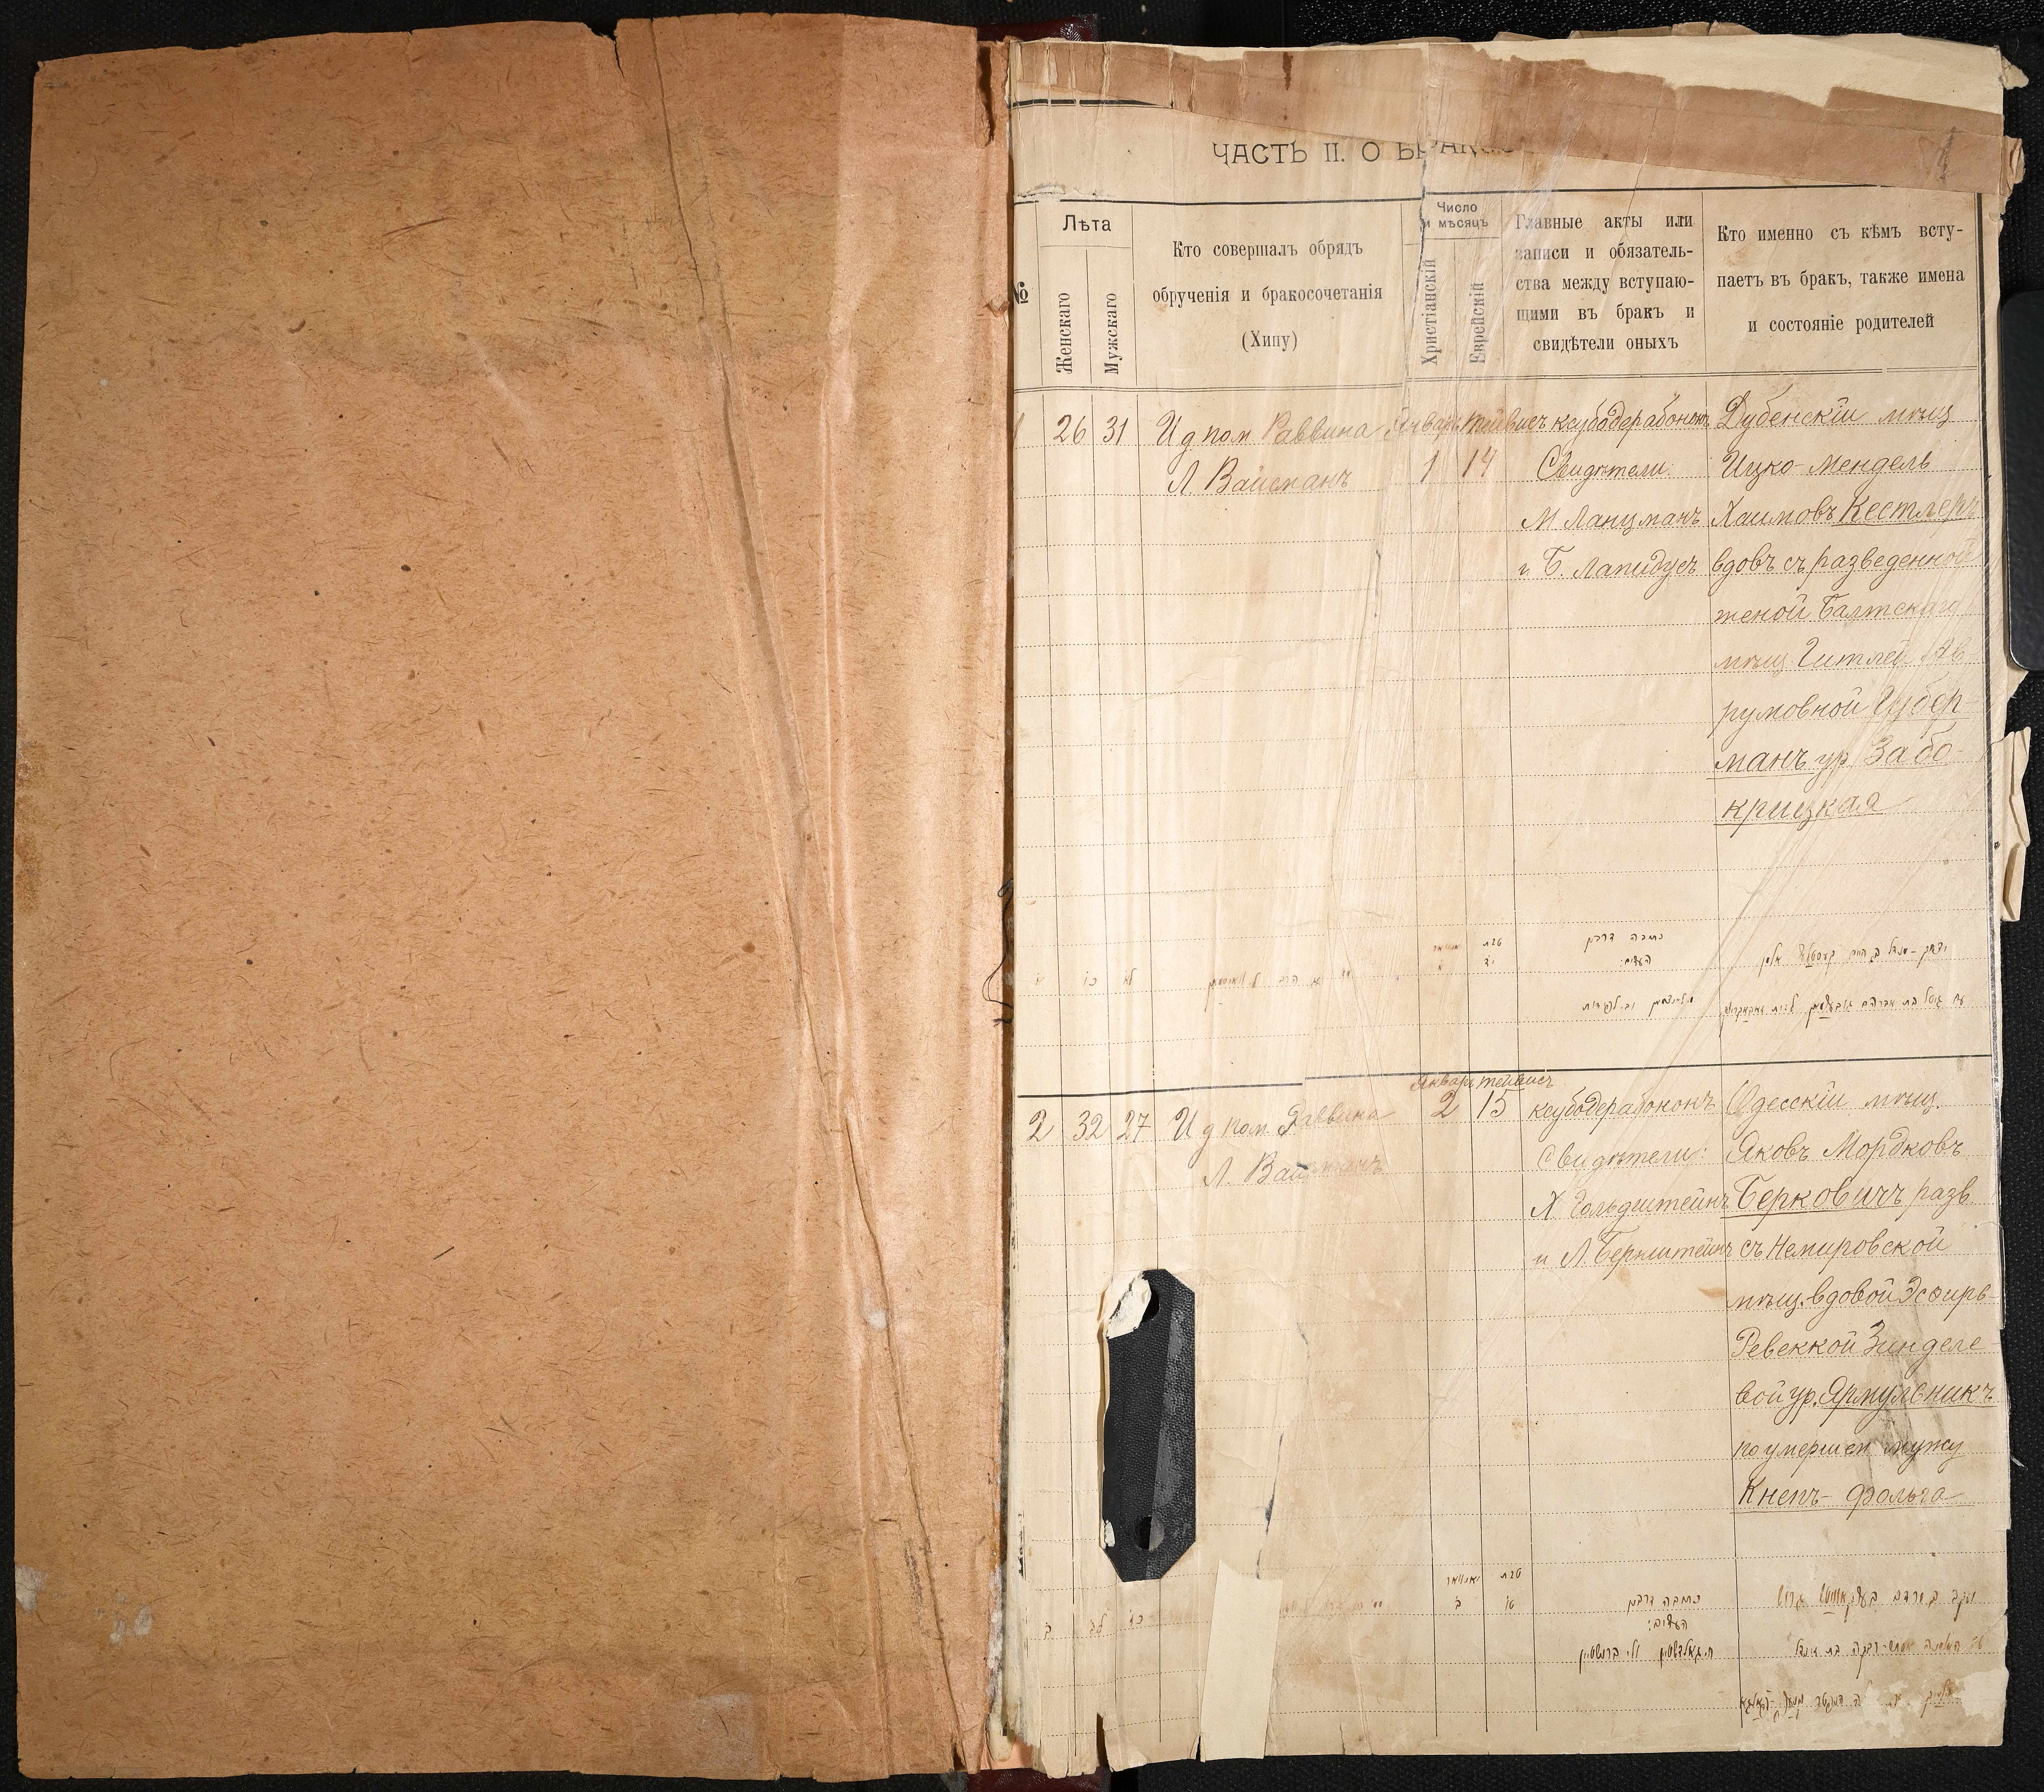 1
ЧАСТЬ II. О БРАК
№
Лѣта
Женскаго
Мужскаго
Кто совершалъ обрядъ
обрученія и бракосочетанія
(Хипу)
Число
и мѣсяцъ
Христіанскій
Еврейскій
Главные акты или
записи и обязатель-
ства между вступаю-
щими въ бракъ и
свидѣтели оныхъ
Кто именно съ кѣмъ всту-
паетъ въ брак, также имена
и состояніе родителей
1
26
31
И д пом Раввина
Л. Вайсманъ
Январь
1
тейвисъ
14
ксубодерабононъ
Свидѣтели:
М Ланцманъ
и Б. Лапидусъ
Дубенскій мѣщ
Ицко-Мендель
Хаимовъ Кестлеръ
вдовъ съ разведенной
женой Балтскаго
мѣщ. Гитлей Ав
румовной Губер-
манъ ур Забо-
крицкая
טבת
יד
כתובה דרבנן
העדים:
2
32
27
И д пом Раввина
Л. Вайсманъ
Январь
2
тейвисъ
15
ксубодерабононъ
Свидѣтели:
Х. Гольдштейнъ
и Л. Бернштейнъ
Одесскій мѣщ.
Яковъ Мордковъ
Берковичъ разв.
съ Немировской
мѣщ. вдовой Эсѳирь-
Ревеккой Зинделе-
вой ур. Ярмульникъ
по умершем мужу
Кнепъ-Фольга
ב
לב
כז
יאנואר
ב
טבת
טו
כתובה דרבנן
העדים: